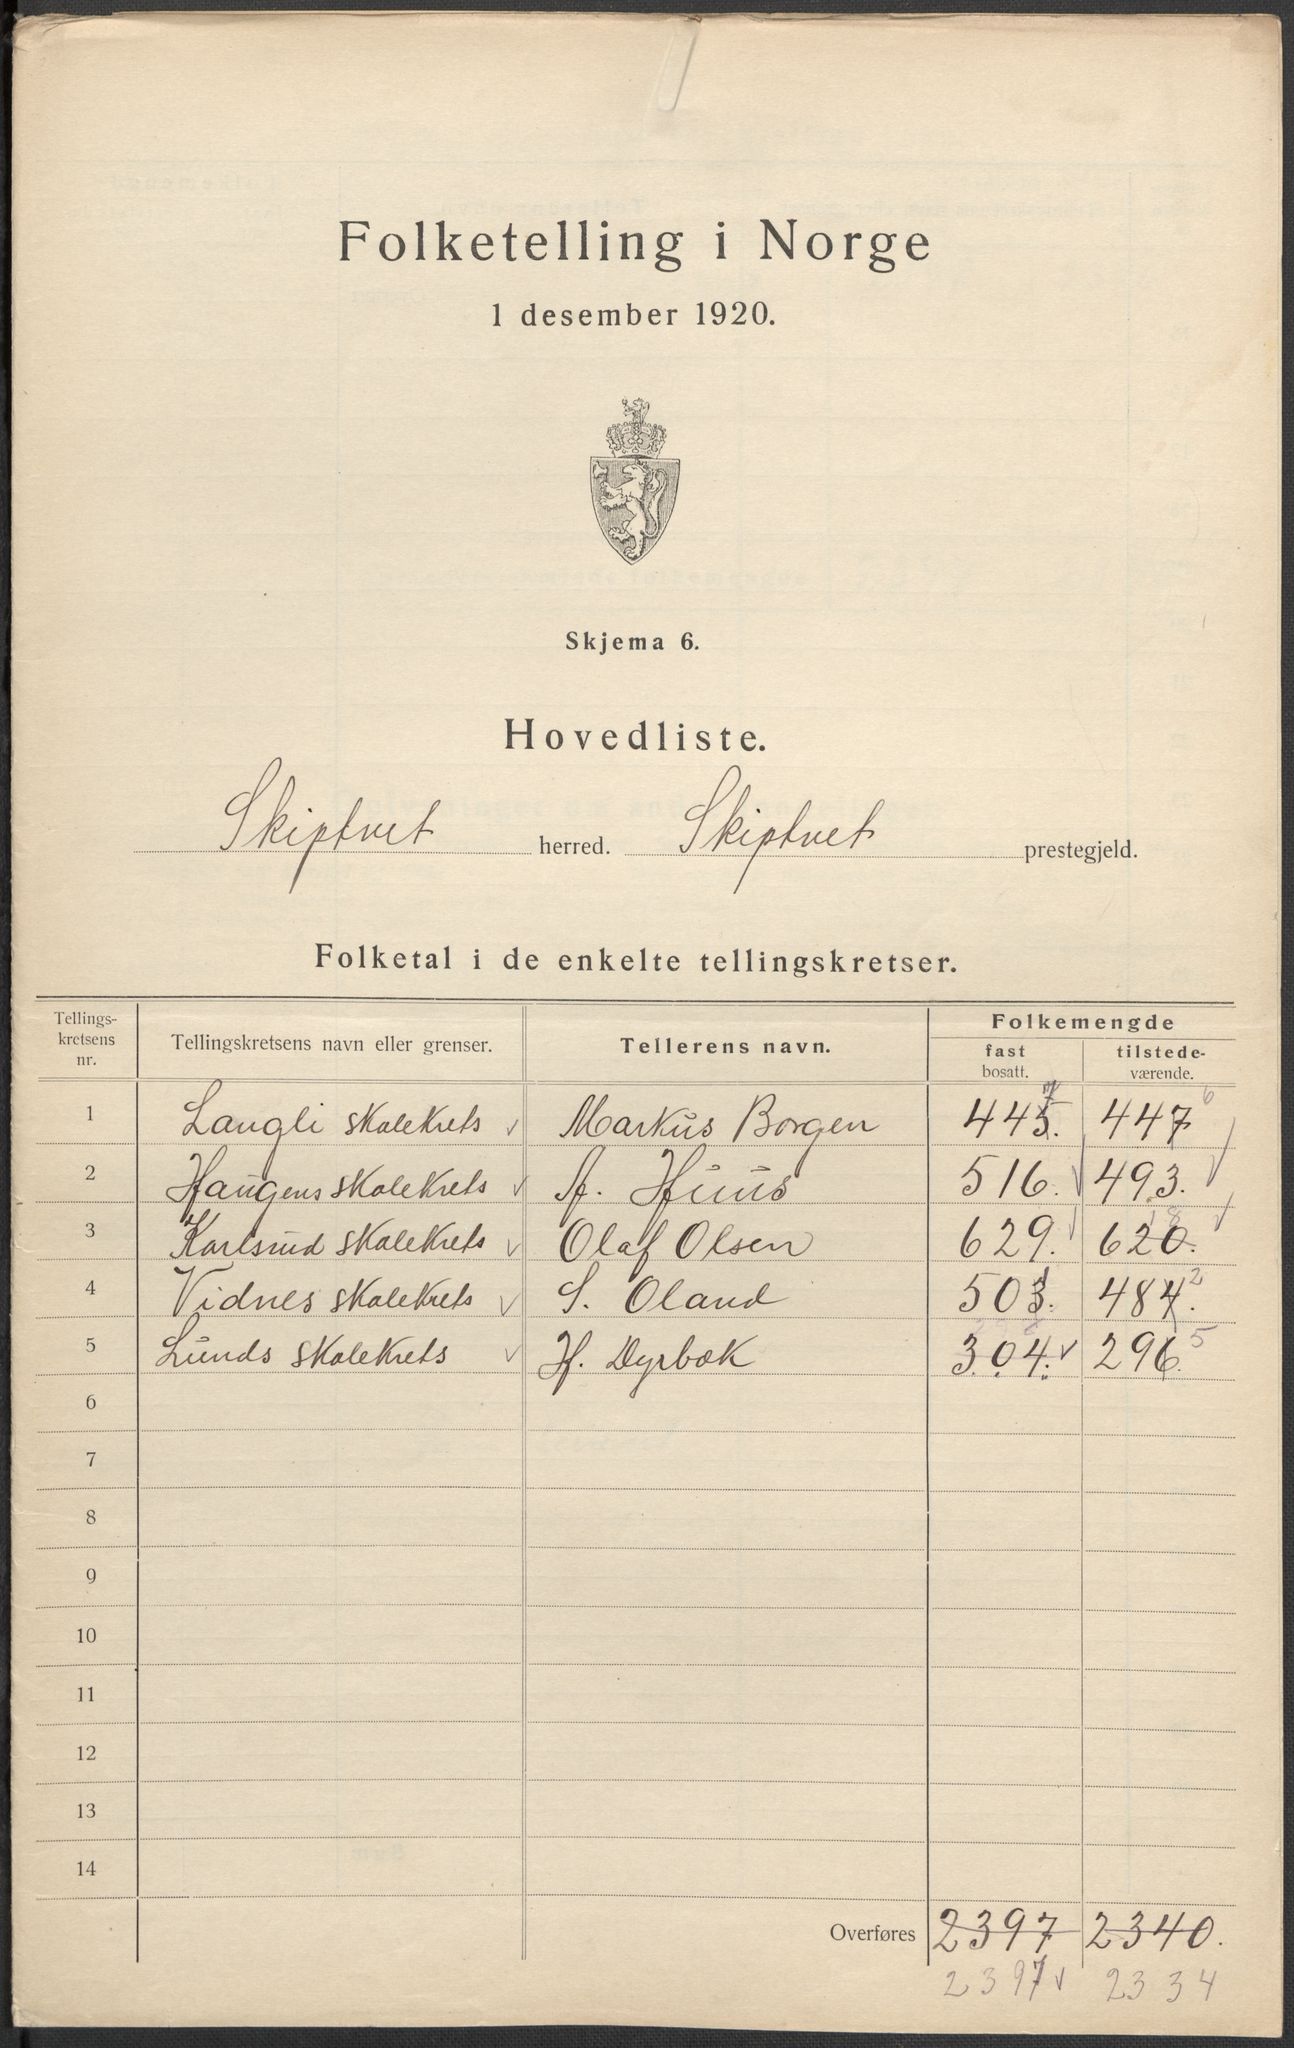 Folketelling i Norge
1 desember 1920.
Skjema 6.
Hovedliste.
Skiptvet herred. Skiptvet prestegjeld.
Folketal i de enkelte tellingskretser.
Tellings-
kretsens
nr.
Tellingskretsens navn eller grenser.
Tellerens navn.
Folkemengde
fast
bosatt.
tilstede-
værende.
1 Langli skolekrets v Markus Borgen 445. 7 447 6
2 Haugens skolekrets v A. Huus 516. v 493. v
3 Karlsrud skolekrets v Olaf Olsen 629. v 620. 18 v
4 Vidnes skolekrets v S. Oland 503. 1 484. 2
5 Lunds skolekrets v H. Dyrbæk 304. v 296. 5
6
7
8
9
10
11
12
13
14
Overføres 2397 2340.
2397 v 2334